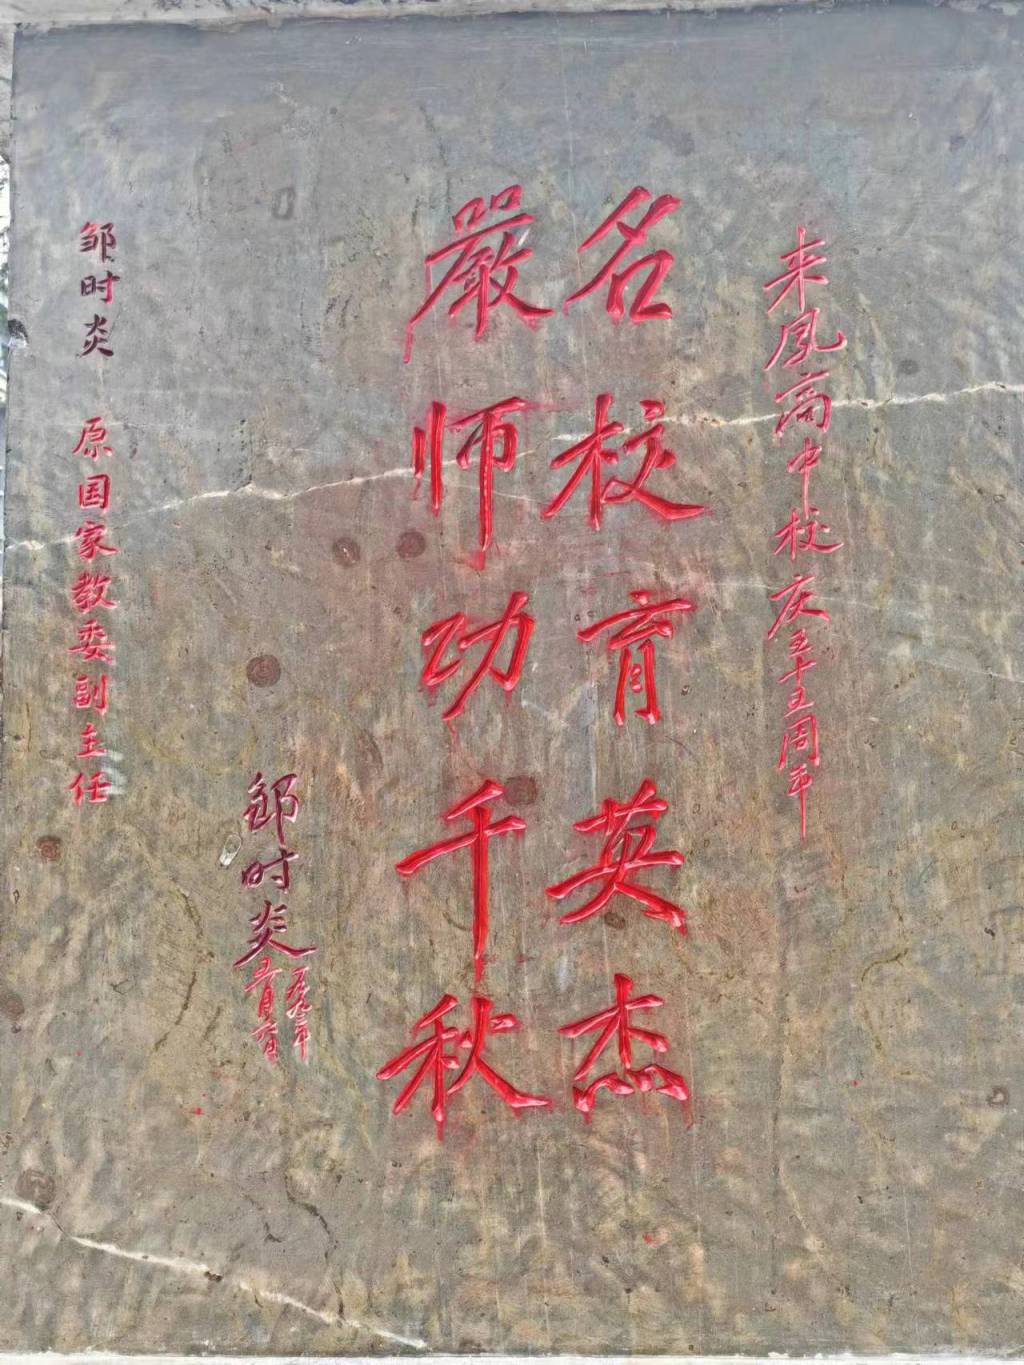 来凤高中校庆五十五周年
名校育英杰
嚴师功千秋
邹时炎
一九九三年
五月六日
邹时炎 原国家教委副主任